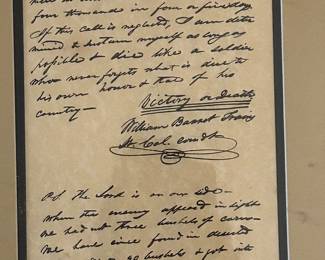 four thousands in four or five days.
If this call is neglected, I am deter
mined to sustain myself as long as
possible & die like a soldier
who never forgets what is due to
his own honor & that of his
country —
Victory or Death
William Barret Travis
Lt. Col. comdt
P.S. The Lord is on our side —
when the enemy appeared in sight
we had not three bushels of corn —
We have since found in deserted
80 bushels & got into